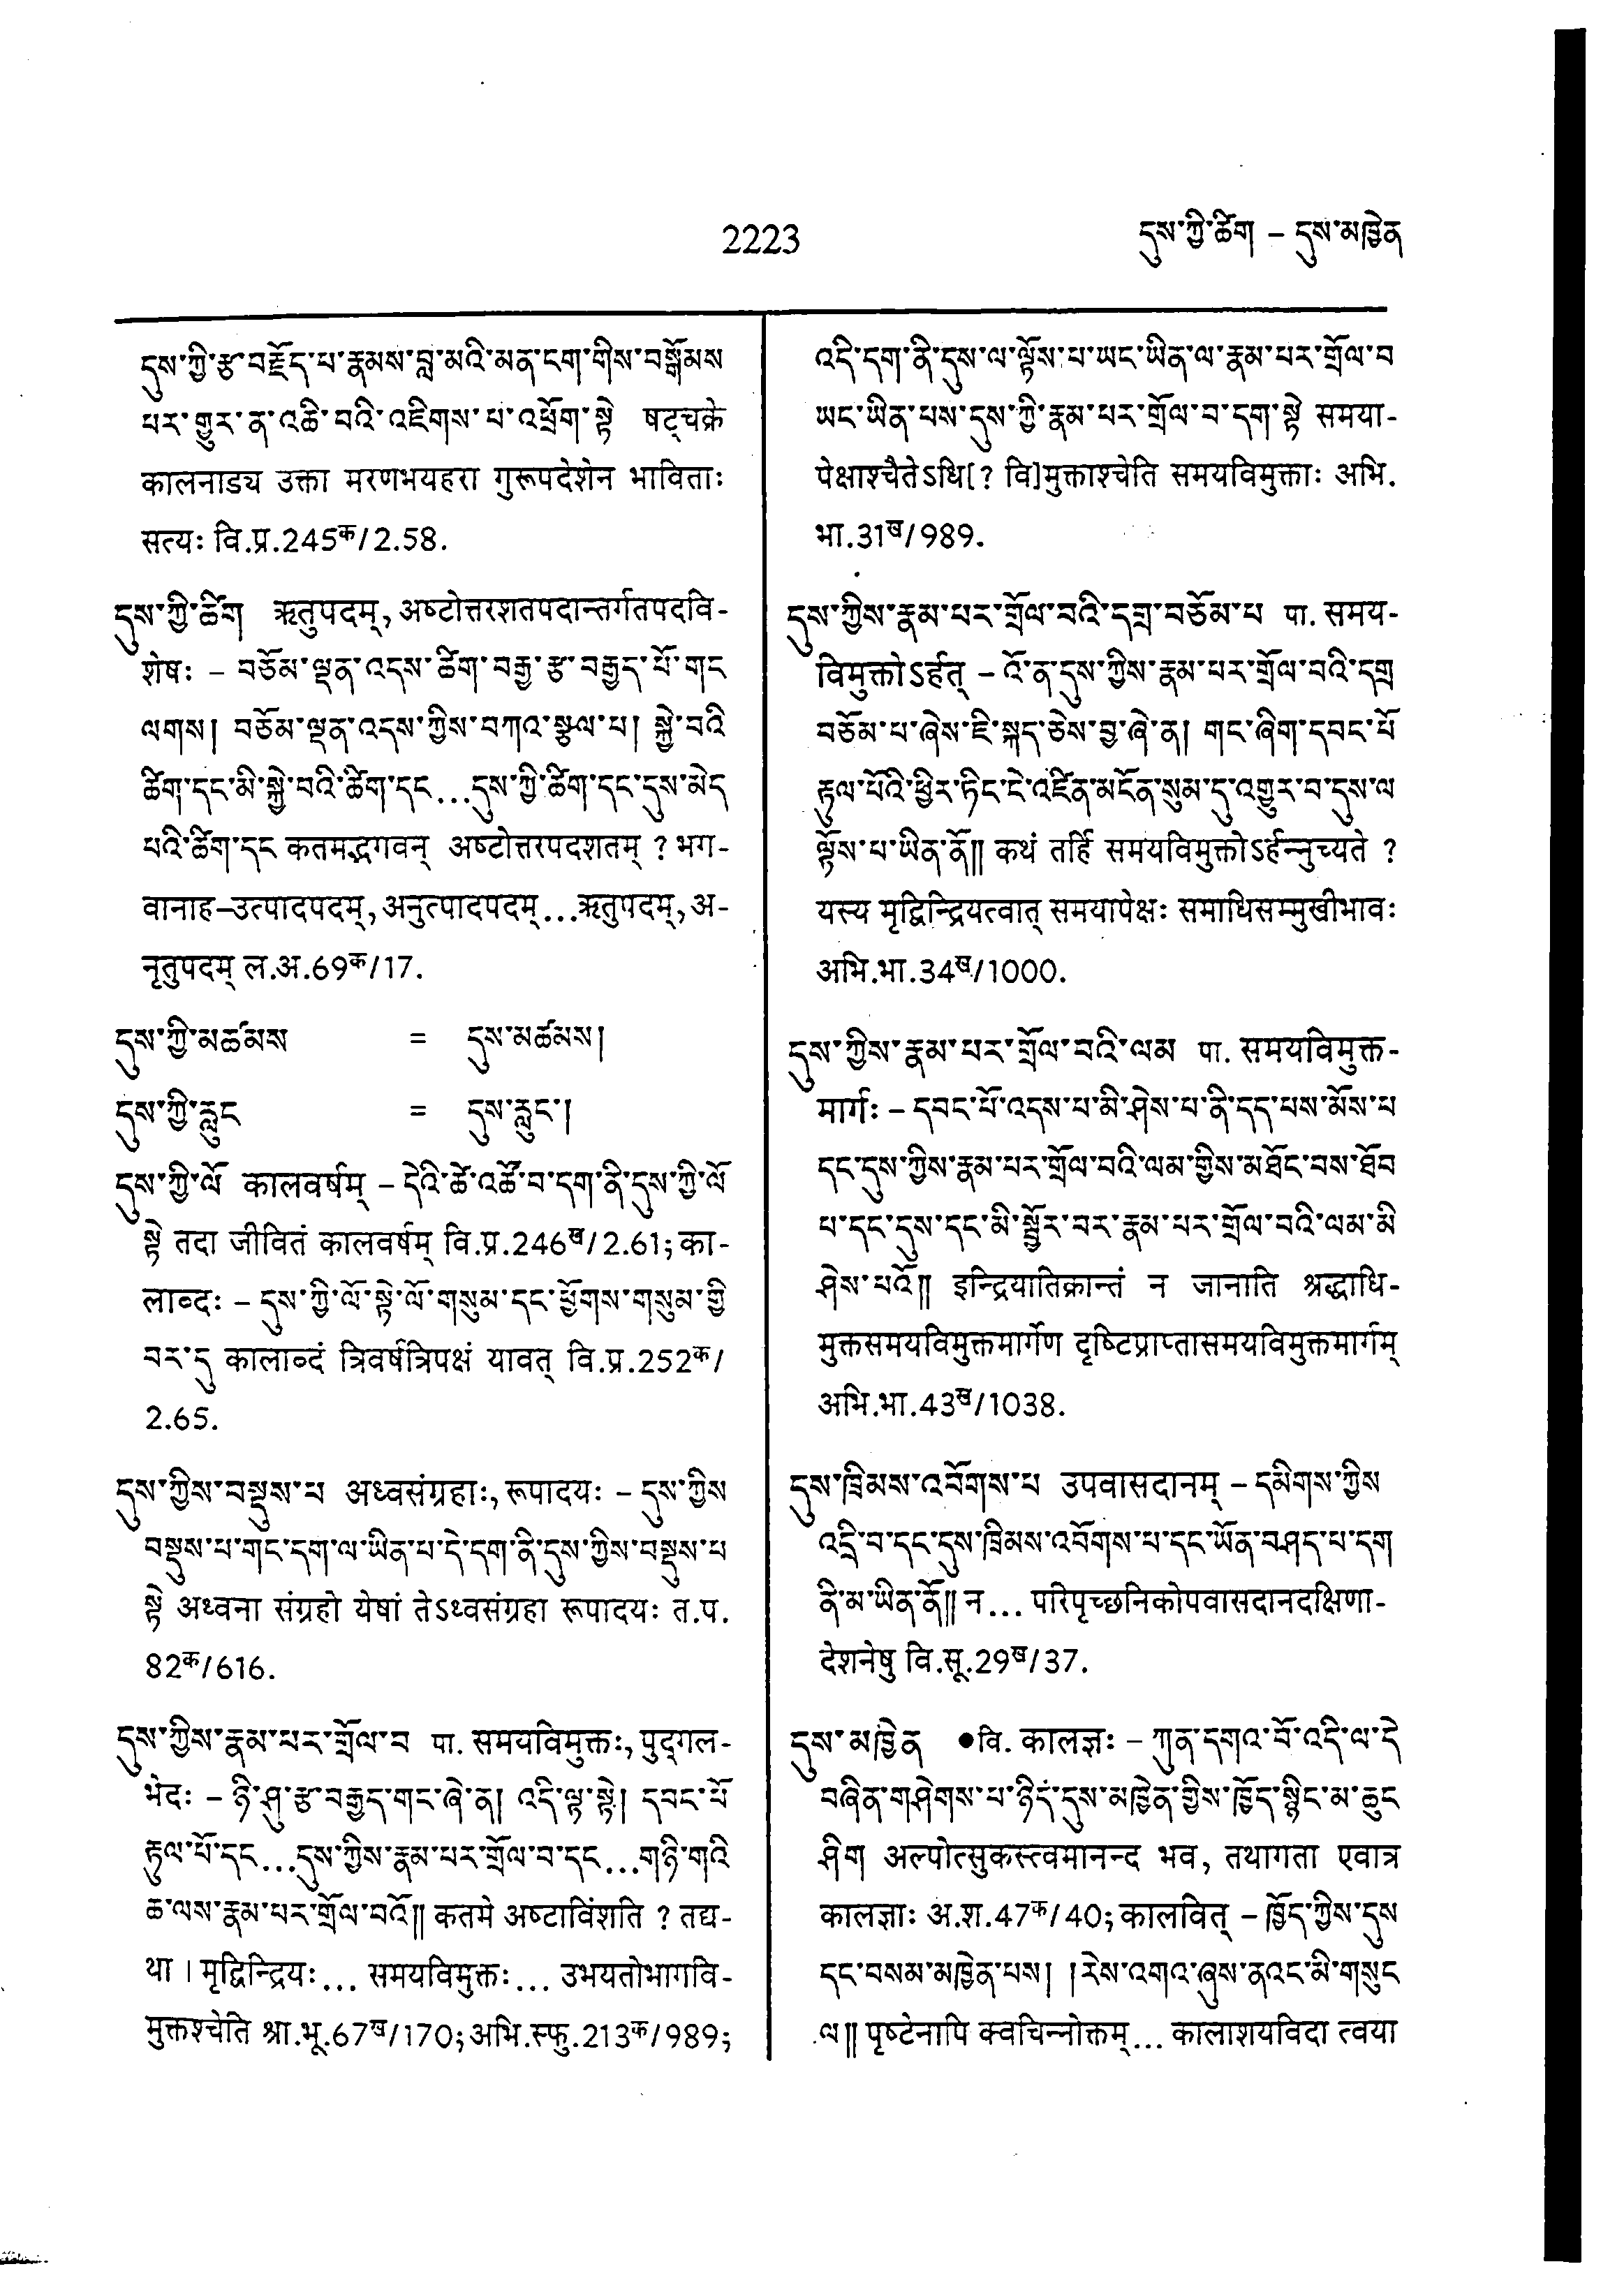 2223
དུས་ཀྱི་ཚིག – དུས་མཁྱེན
དུས་ཀྱི་རྩ་བརྗོད་པ་རྣམས་བླ་མའི་མན་ངག་གིས་བསྒོམས
པར་གྱུར་ན་འཆི་བའི་འཇིགས་པ་འཕྲོག་སྟེ षट्चक्रे
कालनाड्य उक्ता मरणभयहरा गुरूपदेशेन भाविताः
सत्यः वि.प्र.245क/2.58.
དུས་ཀྱི་ཚིག ऋतुपदम्, अष्टोत्तरशतपदान्तर्गतपदवि-
शेषः – བཅོམ་ལྡན་འདས་ཚིག་བརྒྱ་རྩ་བརྒྱད་པོ་གང
ལགས། བཅོམ་ལྡན་འདས་ཀྱིས་བཀའ་སྩལ་པ། སྐྱེ་བའི
ཚིག་དང་མི་སྐྱེ་བའི་ཚིག་དང...དུས་ཀྱི་ཚིག་དང་དུས་མེད
པའི་ཚིག་དང कतमद्भगवन् अष्टोत्तरपदशतम् ? भग-
वानाह–उत्पादपदम्, अनुत्पादपदम्...ऋतुपदम्, अ-
नृतुपदम् ल.अ.69क/17.
དུས་ཀྱི་མཚམས = དུས་མཚམས།
དུས་ཀྱི་རླུང = དུས་རླུང་།
དུས་ཀྱི་ལོ कालवर्षम् – དེའི་ཚེ་འཚོ་བ་དག་ནི་དུས་ཀྱི་ལོ
སྟེ तदा जीवितं कालवर्षम् वि.प्र.246ख/2.61; का-
लाब्दः – དུས་ཀྱི་ལོ་སྟེ་ལོ་གསུམ་དང་ཕྱོགས་གསུམ་གྱི
བར་དུ कालाब्दं त्रिवर्षत्रिपक्षं यावत् वि.प्र.252क/
2.65.
དུས་ཀྱིས་བསྡུས་པ अध्वसंग्रहाः, रूपादयः – དུས་ཀྱིས
བསྡུས་པ་གང་དག་ལ་ཡིན་པ་དེ་དག་ནི་དུས་ཀྱིས་བསྡུས་པ
སྟེ अध्वना संग्रहो येषां तेऽध्वसंग्रहा रूपादयः त.प.
82क/616.
དུས་ཀྱིས་རྣམ་པར་གྲོལ་བ पा. समयविमुक्तः, पुद्गल-
भेदः – ཉི་ཤུ་རྩ་བརྒྱད་གང་ཞེ་ན། འདི་ལྟ་སྟེ། དབང་པོ
རྟུལ་པོ་དང...དུས་ཀྱིས་རྣམ་པར་གྲོལ་བ་དང...གཉི་གའི
ཆ་ལས་རྣམ་པར་གྲོལ་བའོ།། कतमे अष्टाविंशति ? तद्य-
था । मृद्विन्द्रियः... समयविमुक्तः... उभयतोभागवि-
मुक्तश्चेति श्रा.भू.67ख/170; अभि.स्फु.213क/989;
འདི་དག་ནི་དུས་ལ་ལྟོས་པ་ཡང་ཡིན་ལ་རྣམ་པར་གྲོལ་བ
ཡང་ཡིན་པས་དུས་ཀྱི་རྣམ་པར་གྲོལ་བ་དག་སྟེ समया-
पेक्षाश्चैतेऽधि[? वि]मुक्ताश्चेति समयविमुक्ताः अभि.
भा.31ख/989.
དུས་ཀྱིས་རྣམ་པར་གྲོལ་བའི་དགྲ་བཅོམ་པ पा. समय-
विमुक्तोऽर्हत् – འོ་ན་དུས་ཀྱིས་རྣམ་པར་གྲོལ་བའི་དགྲ
བཅོམ་པ་ཞེས་ཇི་སྐད་ཅེས་བྱ་ཞེ་ན། གང་ཞིག་དབང་པོ
རྟུལ་པོའི་ཕྱིར་ཏིང་ངེ་འཛིན་མངོན་སུམ་དུ་འགྱུར་བ་དུས་ལ
ལྟོས་པ་ཡིན་ནོ།། कथं तर्हि समयविमुक्तोऽर्हन्नुच्यते ?
यस्य मृद्विन्द्रियत्वात् समयापेक्षः समाधिसम्मुखीभावः
अभि.भा.34ख/1000.
དུས་ཀྱིས་རྣམ་པར་གྲོལ་བའི་ལམ पा. समयविमुक्त-
मार्गः – དབང་པོ་འདས་པ་མི་ཤེས་པ་ནི་དད་པས་མོས་པ
དང་དུས་ཀྱིས་རྣམ་པར་གྲོལ་བའི་ལམ་གྱིས་མཐོང་བས་ཐོབ
པ་དང་དུས་དང་མི་སྦྱོར་བར་རྣམ་པར་གྲོལ་བའི་ལམ་མི
ཤེས་པའོ།། इन्द्रियातिक्रान्तं न जानाति श्रद्धाधि-
मुक्तसमयविमुक्तमार्गेण दृष्टिप्राप्तासमयविमुक्तमार्गम्
अभि.भा.43ख/1038.
དུས་ཁྲིམས་འབོགས་པ उपवासदानम् – དམིགས་ཀྱིས
འདྲི་བ་དང་དུས་ཁྲིམས་འབོགས་པ་དང་ཡོན་བཤད་པ་དག
ནི་མ་ཡིན་ནོ།། न... परिपृच्छनिकोपवासदानदक्षिणा-
देशनेषु वि.सू.29ख/37.
དུས་མཁྱེན ●वि. कालज्ञः – ཀུན་དགའ་བོ་འདི་ལ་དེ
བཞིན་གཤེགས་པ་ཉིད་དུས་མཁྱེན་གྱིས་ཁྱོད་སྙིང་མ་ཆུང
ཤིག अल्पोत्सुकस्त्वमानन्द भव, तथागता एवात्र
कालज्ञाः अ.श.47क/40; कालवित् – ཁྱོད་ཀྱིས་དུས
དང་བསམ་མཁྱེན་པས། །རེས་འགའ་ཞུས་ནའང་མི་གསུང
ལ།། पृष्टेनापि क्वचिन्नोक्तम्... कालाशयविदा त्वया